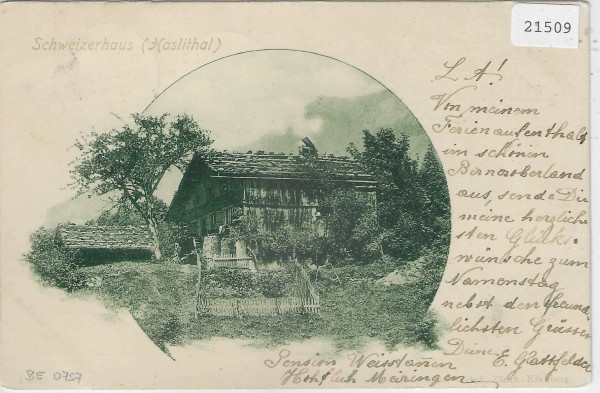 21509
Schweizerhaus (Haslithal)
L. A!
Von meinem
Ferienaufenthalt
im schönen
Berneroberland
aus, sende Dir
meine herzlich
sten Glücks-
wünsche zum
Namenstag
nebst den freund-
lichsten Grüssen
Deine E. Gattfelder
Pension Weisstannen
Hohfluh Meiringen
Zürich-
BE 0757